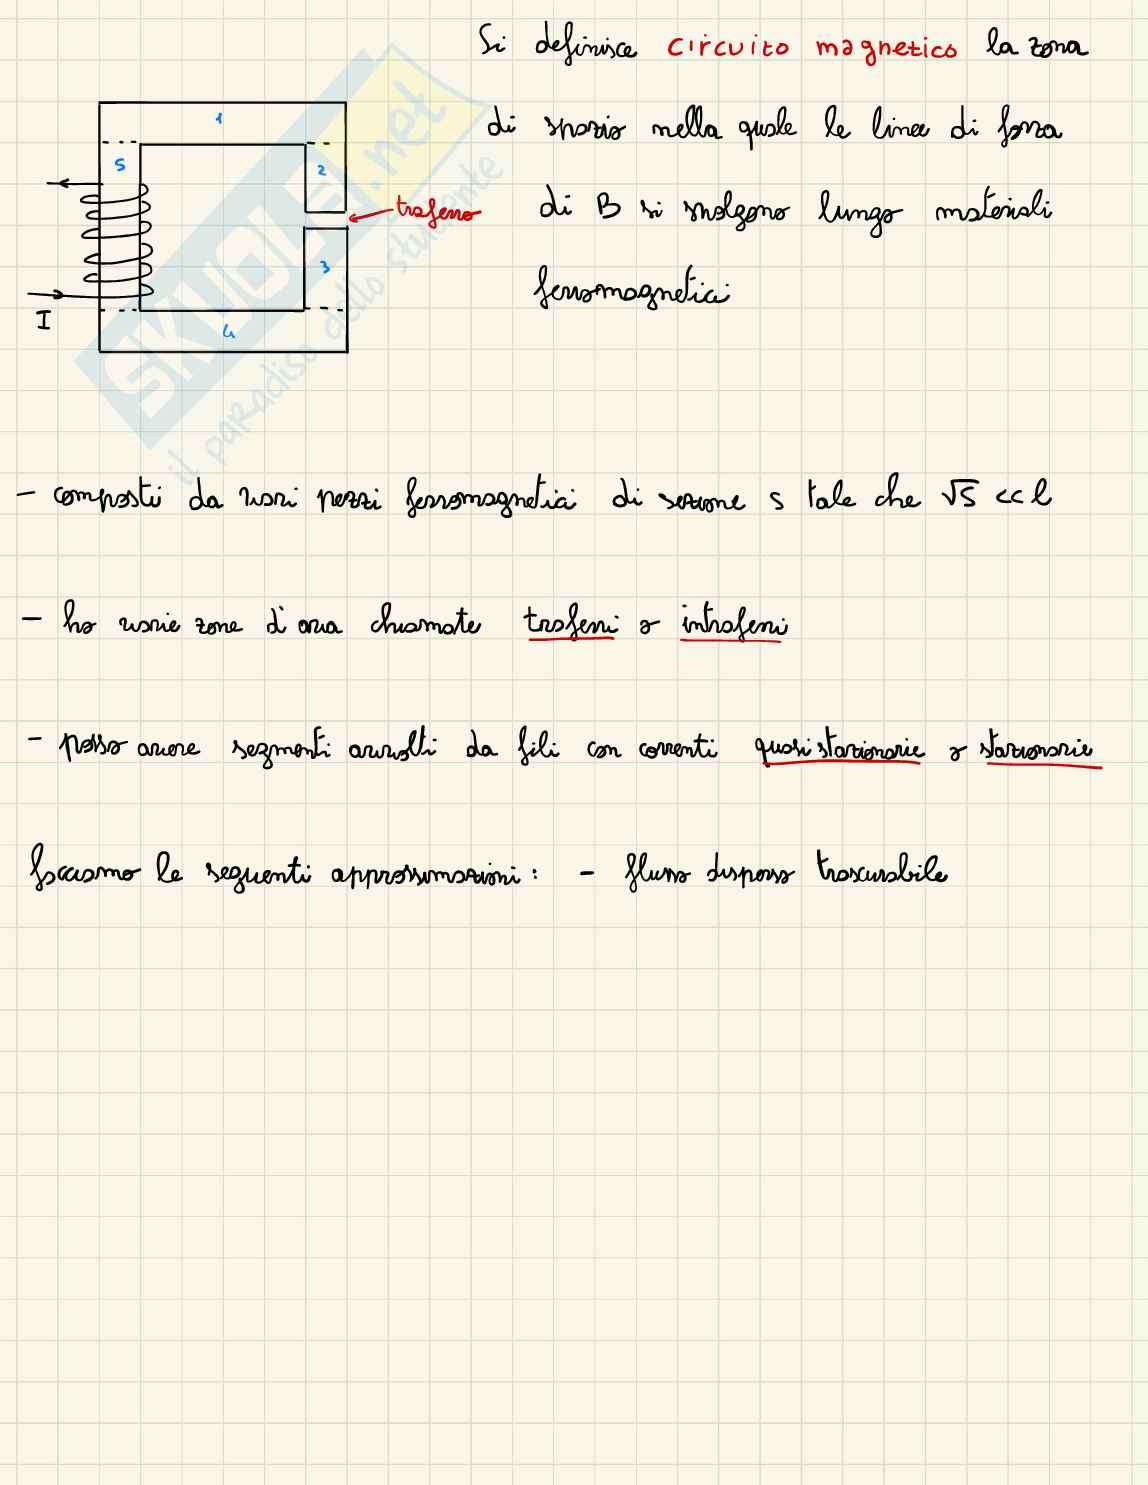 Si definisce circuito magnetico la zona
di spazio nella quale le linee di forza
di B si svolgono lungo materiali
ferromagnetici
1
5
2
traferro
3
I
4
SKUOLA.net
il paradiso dello studente
- composti da vari pezzi ferromagnetici di sezione S tale che √S << l
- ho varie zone d'aria chiamate traferri o intraferri
- posso avere segmenti avvolti da fili con correnti quasi stazionarie o stazionarie
facciamo le seguenti approssimazioni: - flusso disperso trascurabile